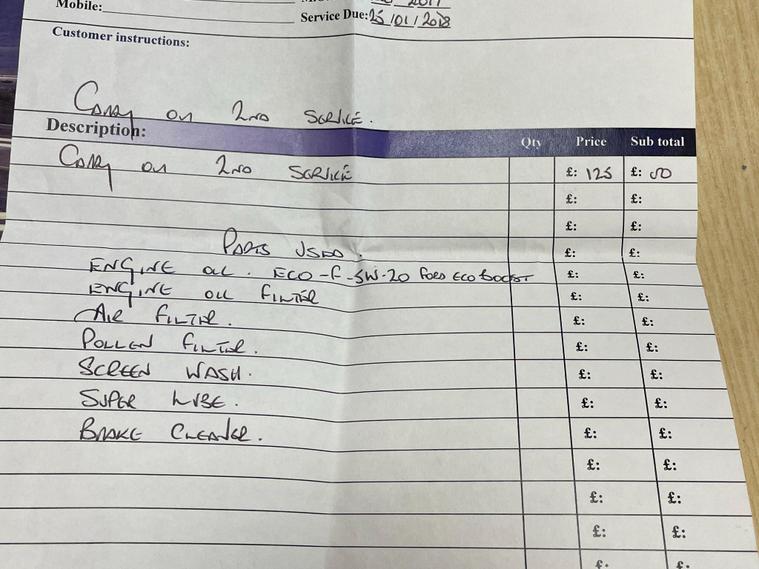 Mobile:
Service Due: 25/01/2018
Customer instructions:
CARRY ON 2ND SERVICE.
Description: Qty Price Sub total
CARRY ON 2ND SERVICE £: 125 £: 00
£: £:
£: £:
PARTS USED. £: £:
ENGINE OIL. ECO-F-5W-20 FORD ECOBOOST £: £:
ENGINE OIL FILTER £: £:
AIR FILTER. £: £:
POLLEN FILTER. £: £:
SCREEN WASH. £: £:
SUPER LUBE. £: £:
BRAKE CLEANER. £: £:
£: £:
£: £:
£: £:
£: £: